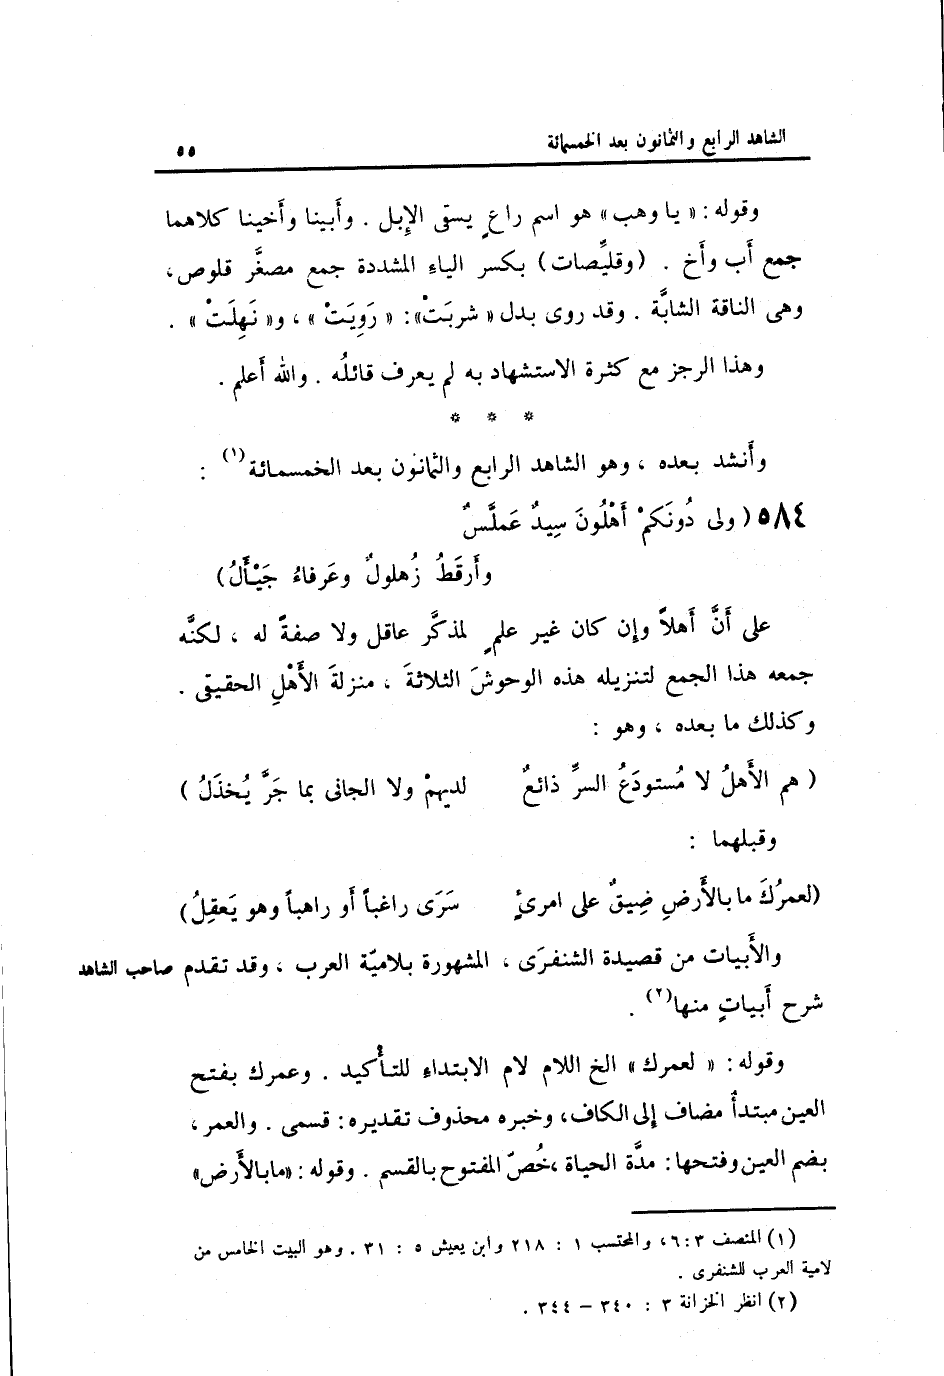 الشاهد الرابع والثمانون بعد الخمسمائة ٥٥
وقوله : « يا وهب » هو اسم راعٍ يستقى الإبل . وأبينا وأخينا كلاهما
جمع أب وأخ . (وقليِّصات) بكسر الياء المشددة جمع مصغَّر قلوص ،
وهى الناقة الشابَّة . وقد روى بدل « شربَتْ » : « رَوِيَتْ » ، و« نَهِلَتْ » .
وهذا الرجز مع كثرة الاستشهاد به لم يعرف قائلُه . والله أعلم .
* * *
وأنشد بعده ، وهو الشاهد الرابع والثمانون بعد الخمسمائة(١) :
٥٨٤ ( ولى دُونَكمْ أهْلُونَ سِيدٌ عَملَّسٌ
وأرقَطُ زُهلولٌ وعَرفاءُ جَيْأَلُ)
على أنَّ أهلاً وإن كان غير علمٍ لمذكَّر عاقل ولا صفةً له ، لكنَّه
جمعه هذا الجمع لتنزيله هذه الوحوشَ الثلاثةَ ، منزلةَ الأَهْلِ الحقيقى .
وكذلك ما بعده ، وهو :
( هم الأَهلُ لا مُستودَعُ السرِّ ذائعٌ لديهمْ ولا الجانى بما جَرَّ يُخذَلُ )
وقبلهما :
(لعمرُكَ ما بالأَرضِ ضِيقٌ على امرئٍ سَرَى راغباً أو راهباً وهو يَعقِلُ)
والأَبيات من قصيدة الشنفرَى ، المشهورة بلاميّة العرب ، وقد تقدم صاحب الشاهد
شرح أبياتٍ منها(٢) .
وقوله : « لعمرك » الخ اللام لام الابتداء للتأكيد . وعمرك بفتح
العين مبتدأ مضاف إلى الكاف ، وخبره محذوف تقديره : قسمى . والعمر ،
بضم العين وفتحها : مدَّة الحياة ، خُصّ المفتوح بالقسم . وقوله : «ما بالأرض»
(١) المنصف ٣ : ٦ ، والمحتسب ١ : ٢١٨ وابن يعيش ٥ : ٣١ . وهو البيت الخامس من
لامية العرب للشنفرى .
(٢) انظر الخزانة ٣ : ٣٤٠ – ٣٤٤ .